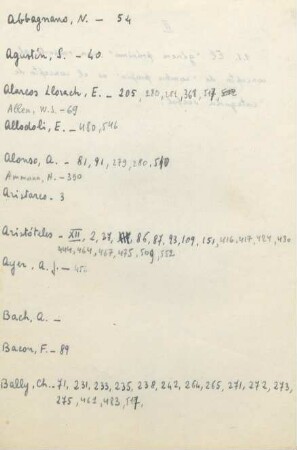 Abbagnano, N. - 54
Agustín, S. - 40
Alarcos Llorach, E. - 205, 280, 282, 368, 517,
Allen, W.S. - 69
Allodoli, E. - 480, 546
Alonso, A. - 81, 91, 279, 280, 510
Ammann, H. - 390
Aristarco. 3
Aristóteles - XII, 2, 27, 86, 87, 93, 109, 151, 416, 417, 424, 430
444, 464, 467, 475, 509, 552
Ayer, A. J. - 450
Bach, A. -
Bacon, F. - 89
Bally, Ch. - 71, 231, 233, 235, 238, 242, 264, 265, 271, 272, 273,
275, 461, 483, 517.